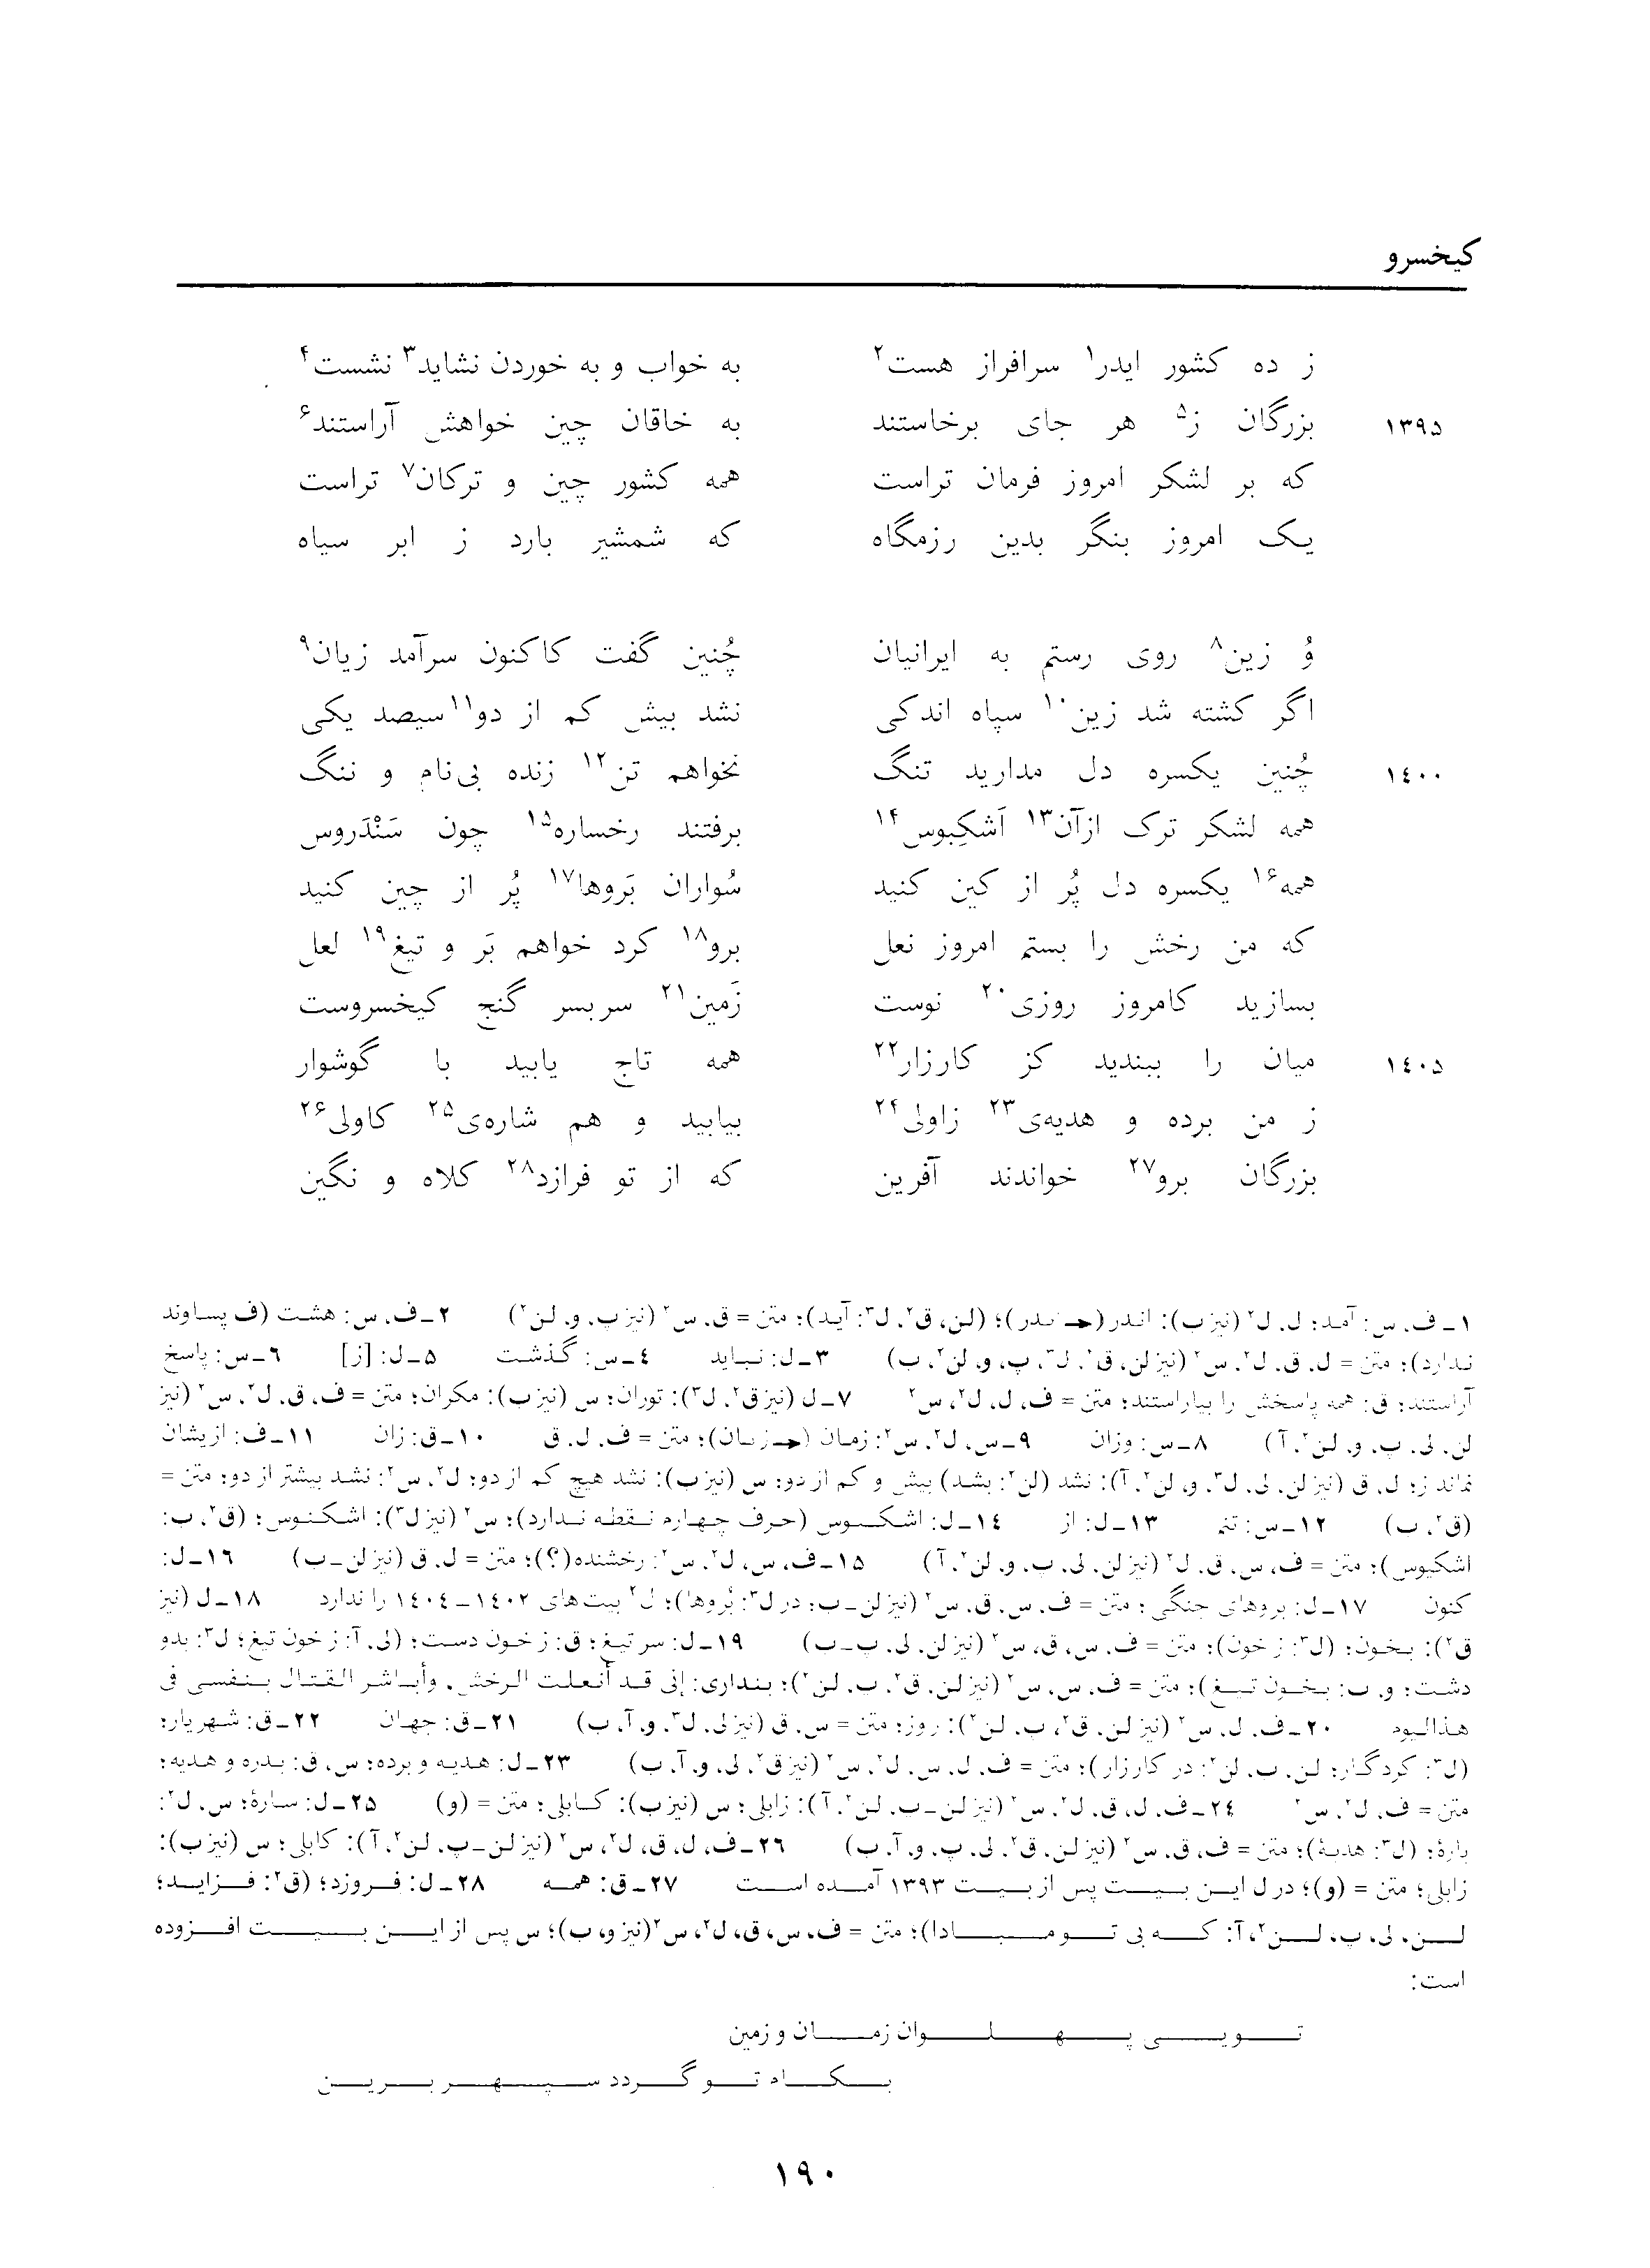 کیخسرو
ز ده کشور ایدر۱ سرافراز هست۲ به خواب و به خوردن نشاید۳ نشست۴
۱۳۹۵ بزرگان ز۵ هر جای برخاستند به خاقان چین خواهش آراستند۶
که بر لشکر امروز فرمان تراست همه کشور چین و ترکان۷ تراست
یک امروز بنگر بدین رزمگاه که شمشیر بارد ز ابر سیاه
وُ زین۸ روی رستم به ایرانیان چُنین گفت کاکنون سرآمد زیان۹
اگر کشته شد زین۱۰ سپاه اندکی نشد بیش کم از دو۱۱ سیصد یکی
۱٤۰۰ چُنین یکسره دل مدارید تنگ نخواهم تن۱۲ زنده بی‌نام و ننگ
همه لشکر ترک ازآن۱۳ اَشکِبوس۱۴ برفتند رخساره۱۵ چون سَنْدَروس
همه۱۶ یکسره دل پُر از کین کنید سُواران بَروها۱۷ پُر از چین کنید
که من رخش را بستم امروز نعل برو۱۸ کرد خواهم بَر و تیغ۱۹ لعل
بسازید کامروز روزی۲۰ نوست زَمین۲۱ سربسر گنج کیخسروست
۱٤۰۵ میان را ببندید کز کارزار۲۲ همه تاج یابید با گوشوار
ز من برده و هدیه‌ی۲۳ زاولی۲۴ بیابید و هم شاره‌ی۲۵ کاولی۲۶
بزرگان برو۲۷ خواندند آفرین که از تو فرازد۲۸ کلاه و نگین
۱ـ ف، س: آمد؛ ل، ل۲ (نیز ب): اندر (← ندر)؛ (لن، ق۲، ل۳: آید)؛ متن = ق، س۲ (نیز پ، و، لن۲) ۲ـ ف، س: هشت (ف پساوند
ندارد)؛ متن = ل، ق، ل۲، س۲ (نیز لن، ق۲، ل۳، پ، و، لن۲، ب) ۳ـ ل: نباید ٤ـ س: گذشت ۵ـ ل: [ز] ٦ـ س: پاسخ
آراستند؛ ق: همه پاسخش را بیاراستند؛ متن = ف، ل، ل۲، س۲ ۷ـ ل (نیز ق۲، ل۳): توران؛ س (نیز ب): مکران؛ متن = ف، ق، ل۲، س۲ (نیز
لن، لی، پ، و، لن۲، آ) ۸ـ س: وزان ۹ـ س، ل۲، س۲: زمان (← زیان)؛ متن = ف، ل، ق ۱۰ـ ق: زان ۱۱ـ ف: ازیشان
نماند ز؛ ل، ق (نیز لن، لی، ل۳، و، لن۲، آ): نشد (لن۲: بشد) بیش و کم از دو؛ س (نیز ب): نشد هیچ کم از دو؛ ل۲، س۲: نشد بیشتر از دو؛ متن =
(ق۲، ب) ۱۲ـ س: تنم ۱۳ـ ل: از ۱٤ـ ل: اشکبوس (حرف چهارم نقطه ندارد)؛ س۲ (نیز ل۳): اشکنوس؛ (ق۲، ب:
اشکیوس)؛ متن = ف، س، ق، ل۲ (نیز لن، لی، پ، و، لن۲، آ) ۱۵ـ ف، س، ل۲، س۲: رخشنده(؟)؛ متن = ل، ق (نیز لن ـ ب) ۱٦ـ ل:
کنون ۱۷ـ ل: بروهای جنگی؛ متن = ف، س، ق، س۲ (نیز لن ـ ب؛ در ل۳: بُروها)؛ ل۲ بیت‌های ۱٤۰۲ ـ ۱٤۰٤ را ندارد ۱۸ـ ل (نیز
ق۲): بخون؛ (ل۳: ز خون)؛ متن = ف، س، ق، س۲ (نیز لن، لی، پ ـ ب) ۱۹ـ ل: سر تیغ؛ ق: ز خون دست؛ (لی، آ: ز خون تیغ؛ ل۳: بدو
دشت؛ و، ب: بخون تیغ)؛ متن = ف، س، س۲ (نیز لن، ق۲، پ، لن۲)؛ بنداری: إنی قد أنعلت الرخش، وأباشر القتال بنفسی فی
هذالیوم ۲۰ـ ف، ل، س۲ (نیز لن، ق۲، پ، لن۲): روز؛ متن = س، ق (نیز لی، ل۳، و، آ، ب) ۲۱ـ ق: جهان ۲۲ـ ق: شهریار؛
(ل۳: کردگار؛ لن، پ، لن۲: در کارزار)؛ متن = ف، ل، س، ل۲، س۲ (نیز ق۲، لی، و، آ، ب) ۲۳ـ ل: هدیه و برده؛ س، ق: بدره و هدیه؛
متن = ف، ل۲، س۲ ۲٤ـ ف، ل، ق، ل۲، س۲ (نیز لن ـ پ، لن۲، آ): زابلی؛ س (نیز ب): کابلی؛ متن = (و) ۲۵ـ ل: سارهٔ؛ س، ل۲:
بارهٔ؛ (ل۳: هدیهٔ)؛ متن = ف، ق، س۲ (نیز لن، ق۲، لی، پ، و، آ، ب) ۲٦ـ ف، ل، ق، ل۲، س۲ (نیز لن ـ پ، لن۲، آ): کابلی؛ س (نیز ب):
زابلی؛ متن = (و)؛ در ل این بیت پس از بیت ۱۳۹۳ آمده است ۲۷ـ ق: همه ۲۸ـ ل: فروزد؛ (ق۲: فزاید؛
لن، لی، پ، لن۲، آ: که بی تو مبادا)؛ متن = ف، س، ق، ل۲، س۲ (نیز و، ب)؛ س پس از این بیت افزوده
است:
تویی پهلوان زمان و زمین
بکام تو گردد سپهر برین
۱۹۰